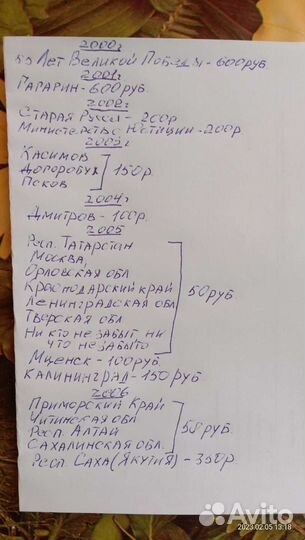 2000г
55 Лет Великой Победы - 600руб
2001г
Гагарин - 600руб
2002г
Старая Русса - 200р
Министерство Юстиции - 200р.
2003г
Касимов
Дорогобуж 150р.
Псков
2004г
Дмитров - 100р.
2005
Респ. Татарстан
Москва
Орловская обл
Краснодарский край
Ленинградская обл 50руб
Тверская обл
Ни кто не забыт, ни
что не забыто
Мценск - 100руб
Калининград - 150руб
2006
Приморский Край
Читинская обл
Респ. Алтай 50руб.
Сахалинская обл.
Респ Саха (Якутия) - 350р.
Avito
2023.02.05 13:18